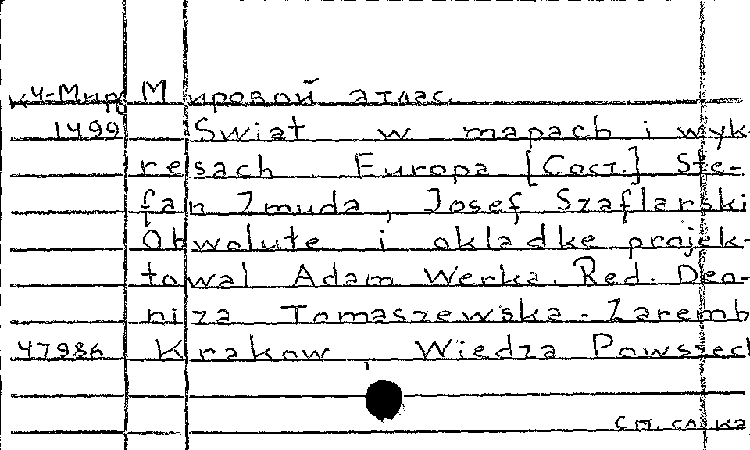 К4-Мир Мировой атлас.
1499 Swiat w mapach i wyk-
resach Europa [Сост.] Ste-
fan Zmuda, Josef Szaflarski
Obwolute i okladke projek-
towal Adam Werka. Red. Deo-
niza Tomaszewska-Zaremb
47986 Krakow, Wiedza Powszech
см. сл. ка